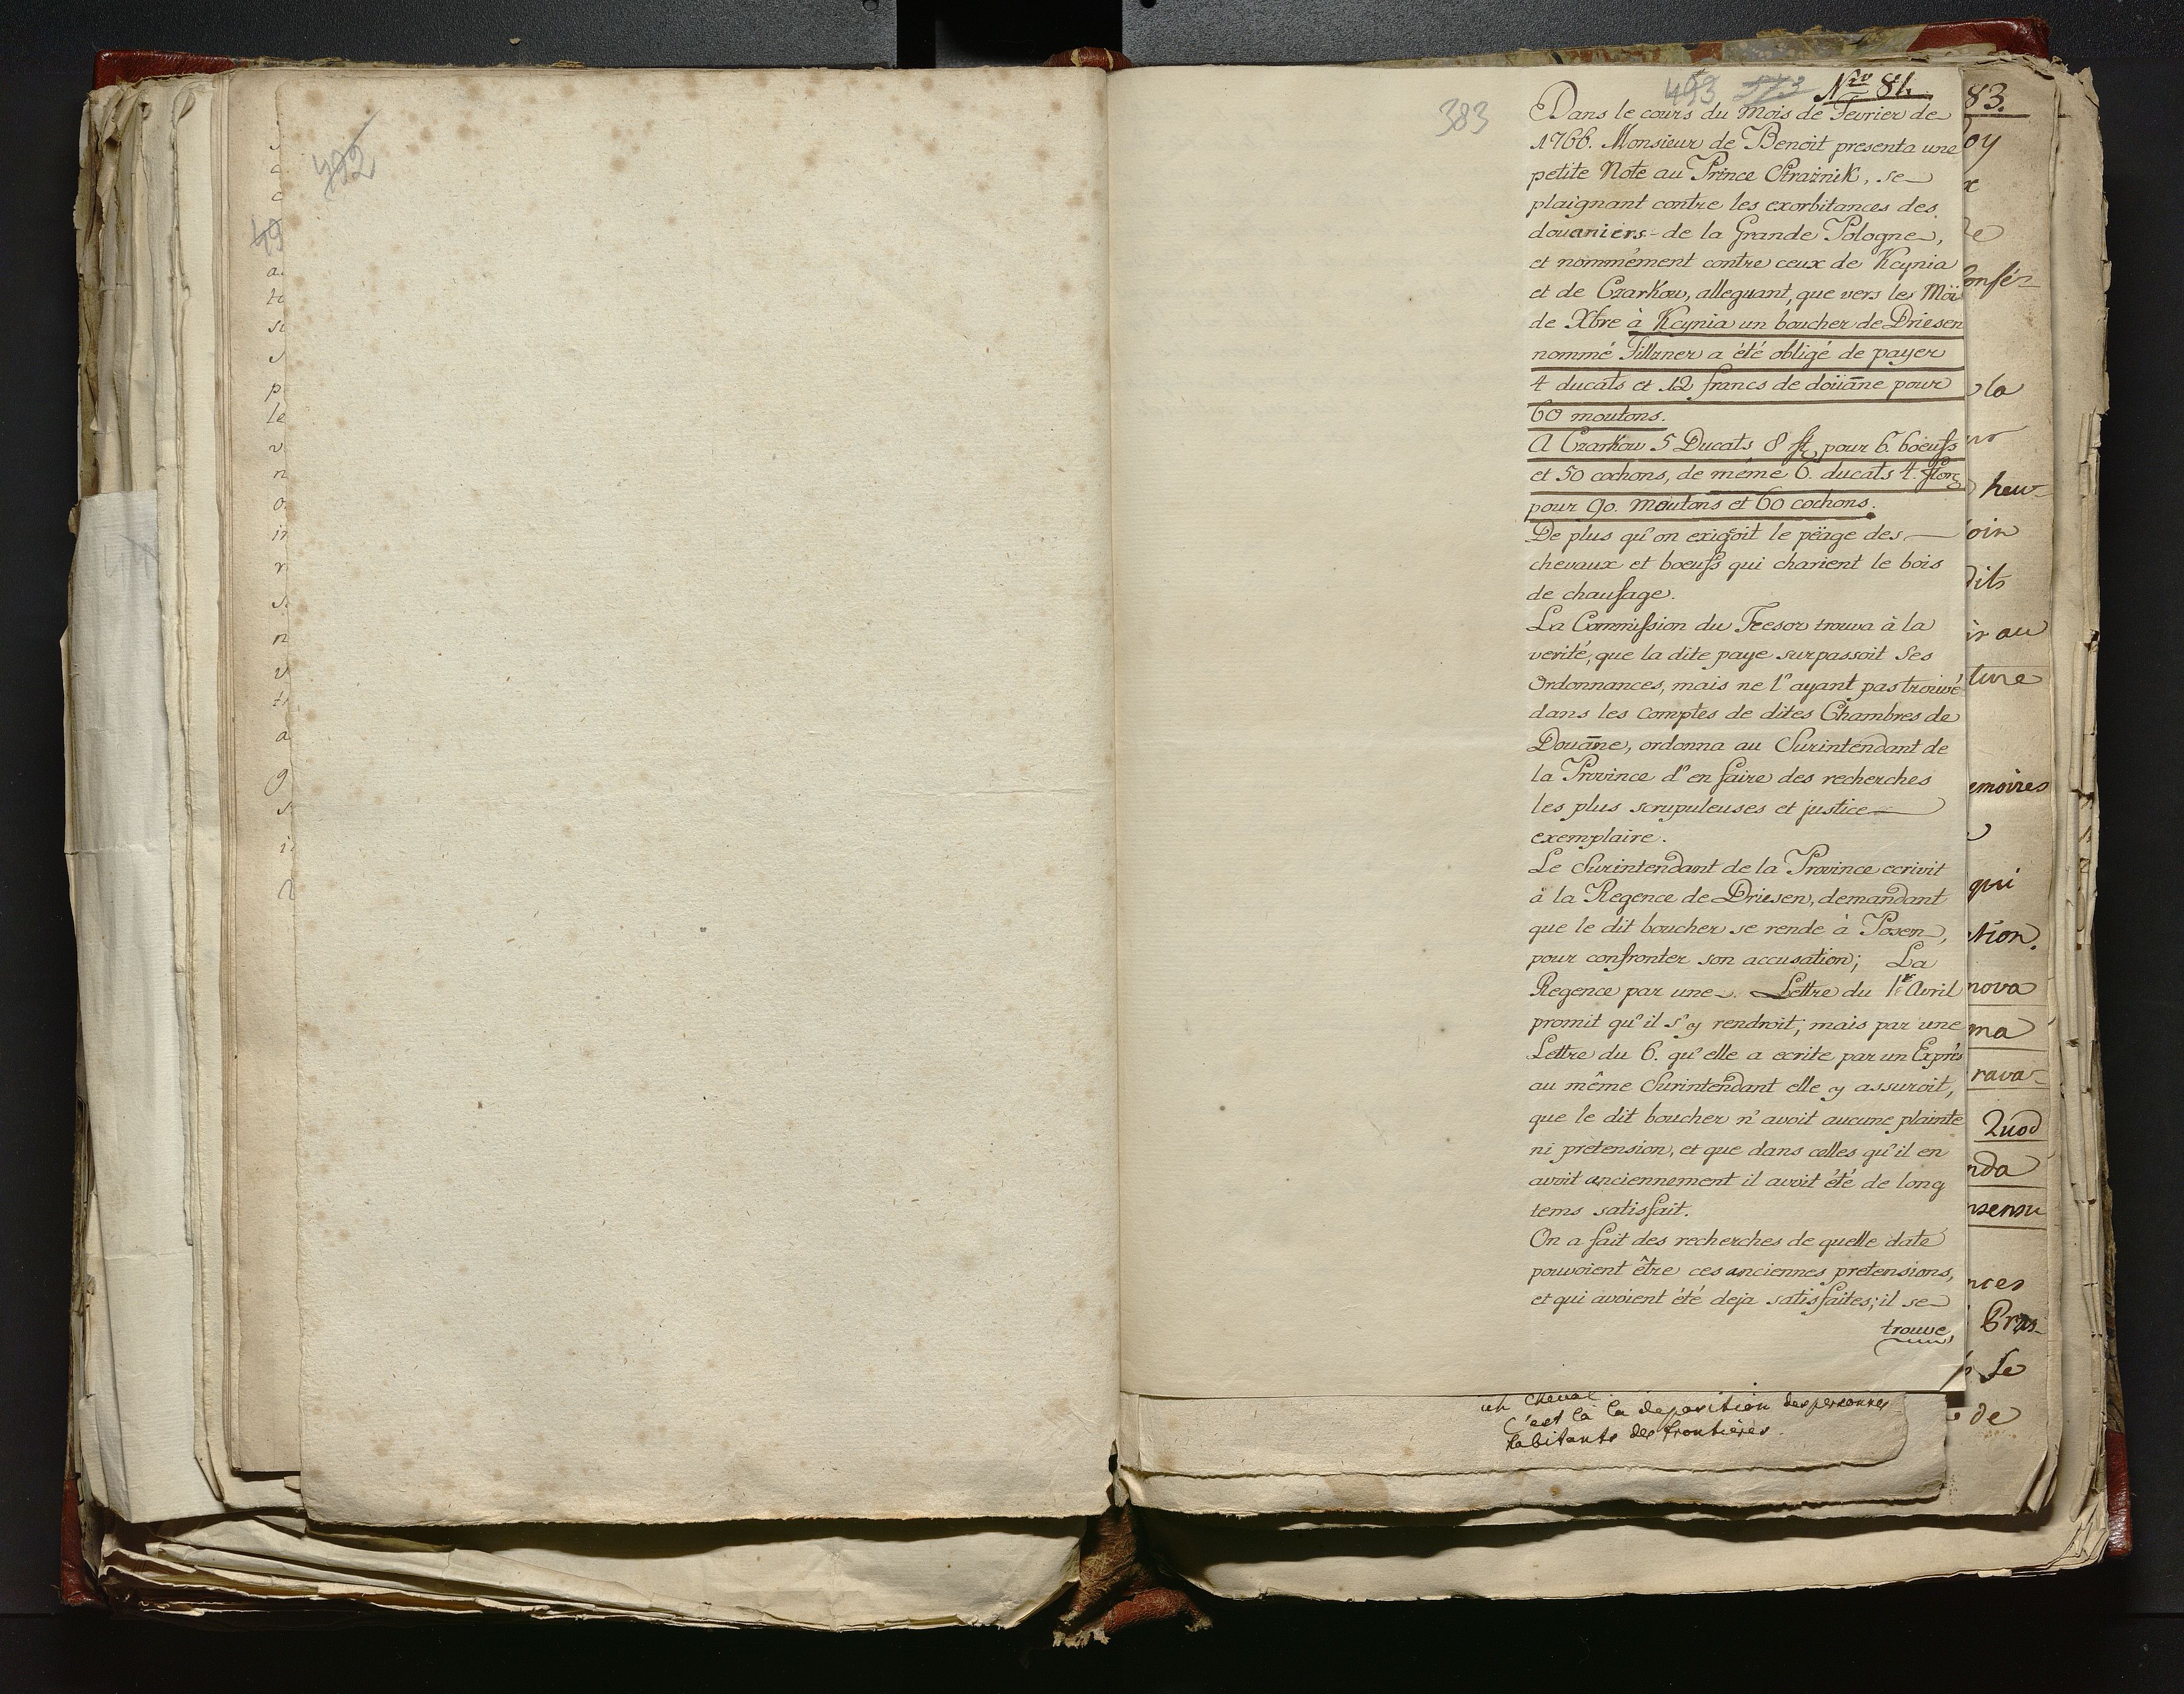 492
383
493 573 Nro 81.
Dans le cours du Mois de Fevrier de
1766. Monsieur de Benoit presenta une
petite Note au Prince Straźnik, se
plaignant contre les exorbitances des
douaniers de la Grande Pologne,
et nommément contre ceux de Kcynia
et de Czarkow, alleguant, que vers les Moi
de Xbre à Kcynia un boucher de Driesen
nommé Fillzner a été obligé de payer
4 ducats et 12 francs de doüane pour
60 moutons.
A Czarkow 5 Ducats 8 fl. pour 6 boeufs
et 50 cochons, de même 6. ducats 4. flor
pour 90. Moutons et 60 cochons.
De plus qu'on exigoit le péage des
chevaux et boeufs qui charient le bois
de chaufage.
La Commission du Tresor trouva à la
verité, que la dite paye surpassoit Ses
Ordonnances, mais ne l'ayant pas trouvé
dans les comptes de dites Chambres de
Douane, ordonna au Surintendant de
la Province d'en faire des recherches
les plus scrupuleuses et justice
exemplaire.
Le Surintendant de la Province ecrivit
à la Regence de Driesen, demandant
que le dit boucher se rende à Posen,
pour confronter son accusation; La
Regence par une Lettre du 1r Avril
promit qu'il s'y rendroit, mais par une
Lettre du 6. qu'elle a ecrite par un Exprès
au même Surintendant elle y assuroit,
que le dit boucher n'avoit aucune plainte
ni pretension, et que dans celles qu'il en
avoit anciennement il avoit été de long
tems satisfait.
On a fait des recherches de quelle date
pouvoient être ces anciennes pretensions,
et qui avoient été deja satisfaites; il se
trouve,
un cheval
C'est là la deposition des personnes
habitants des frontieres.
83.
oy
onfé-
la
heu-
oin
dits
ir au
ture
emoires
qui
tion.
nova
ma
rava-
Quod
nda
nsensu
nces
Bras-
se
de